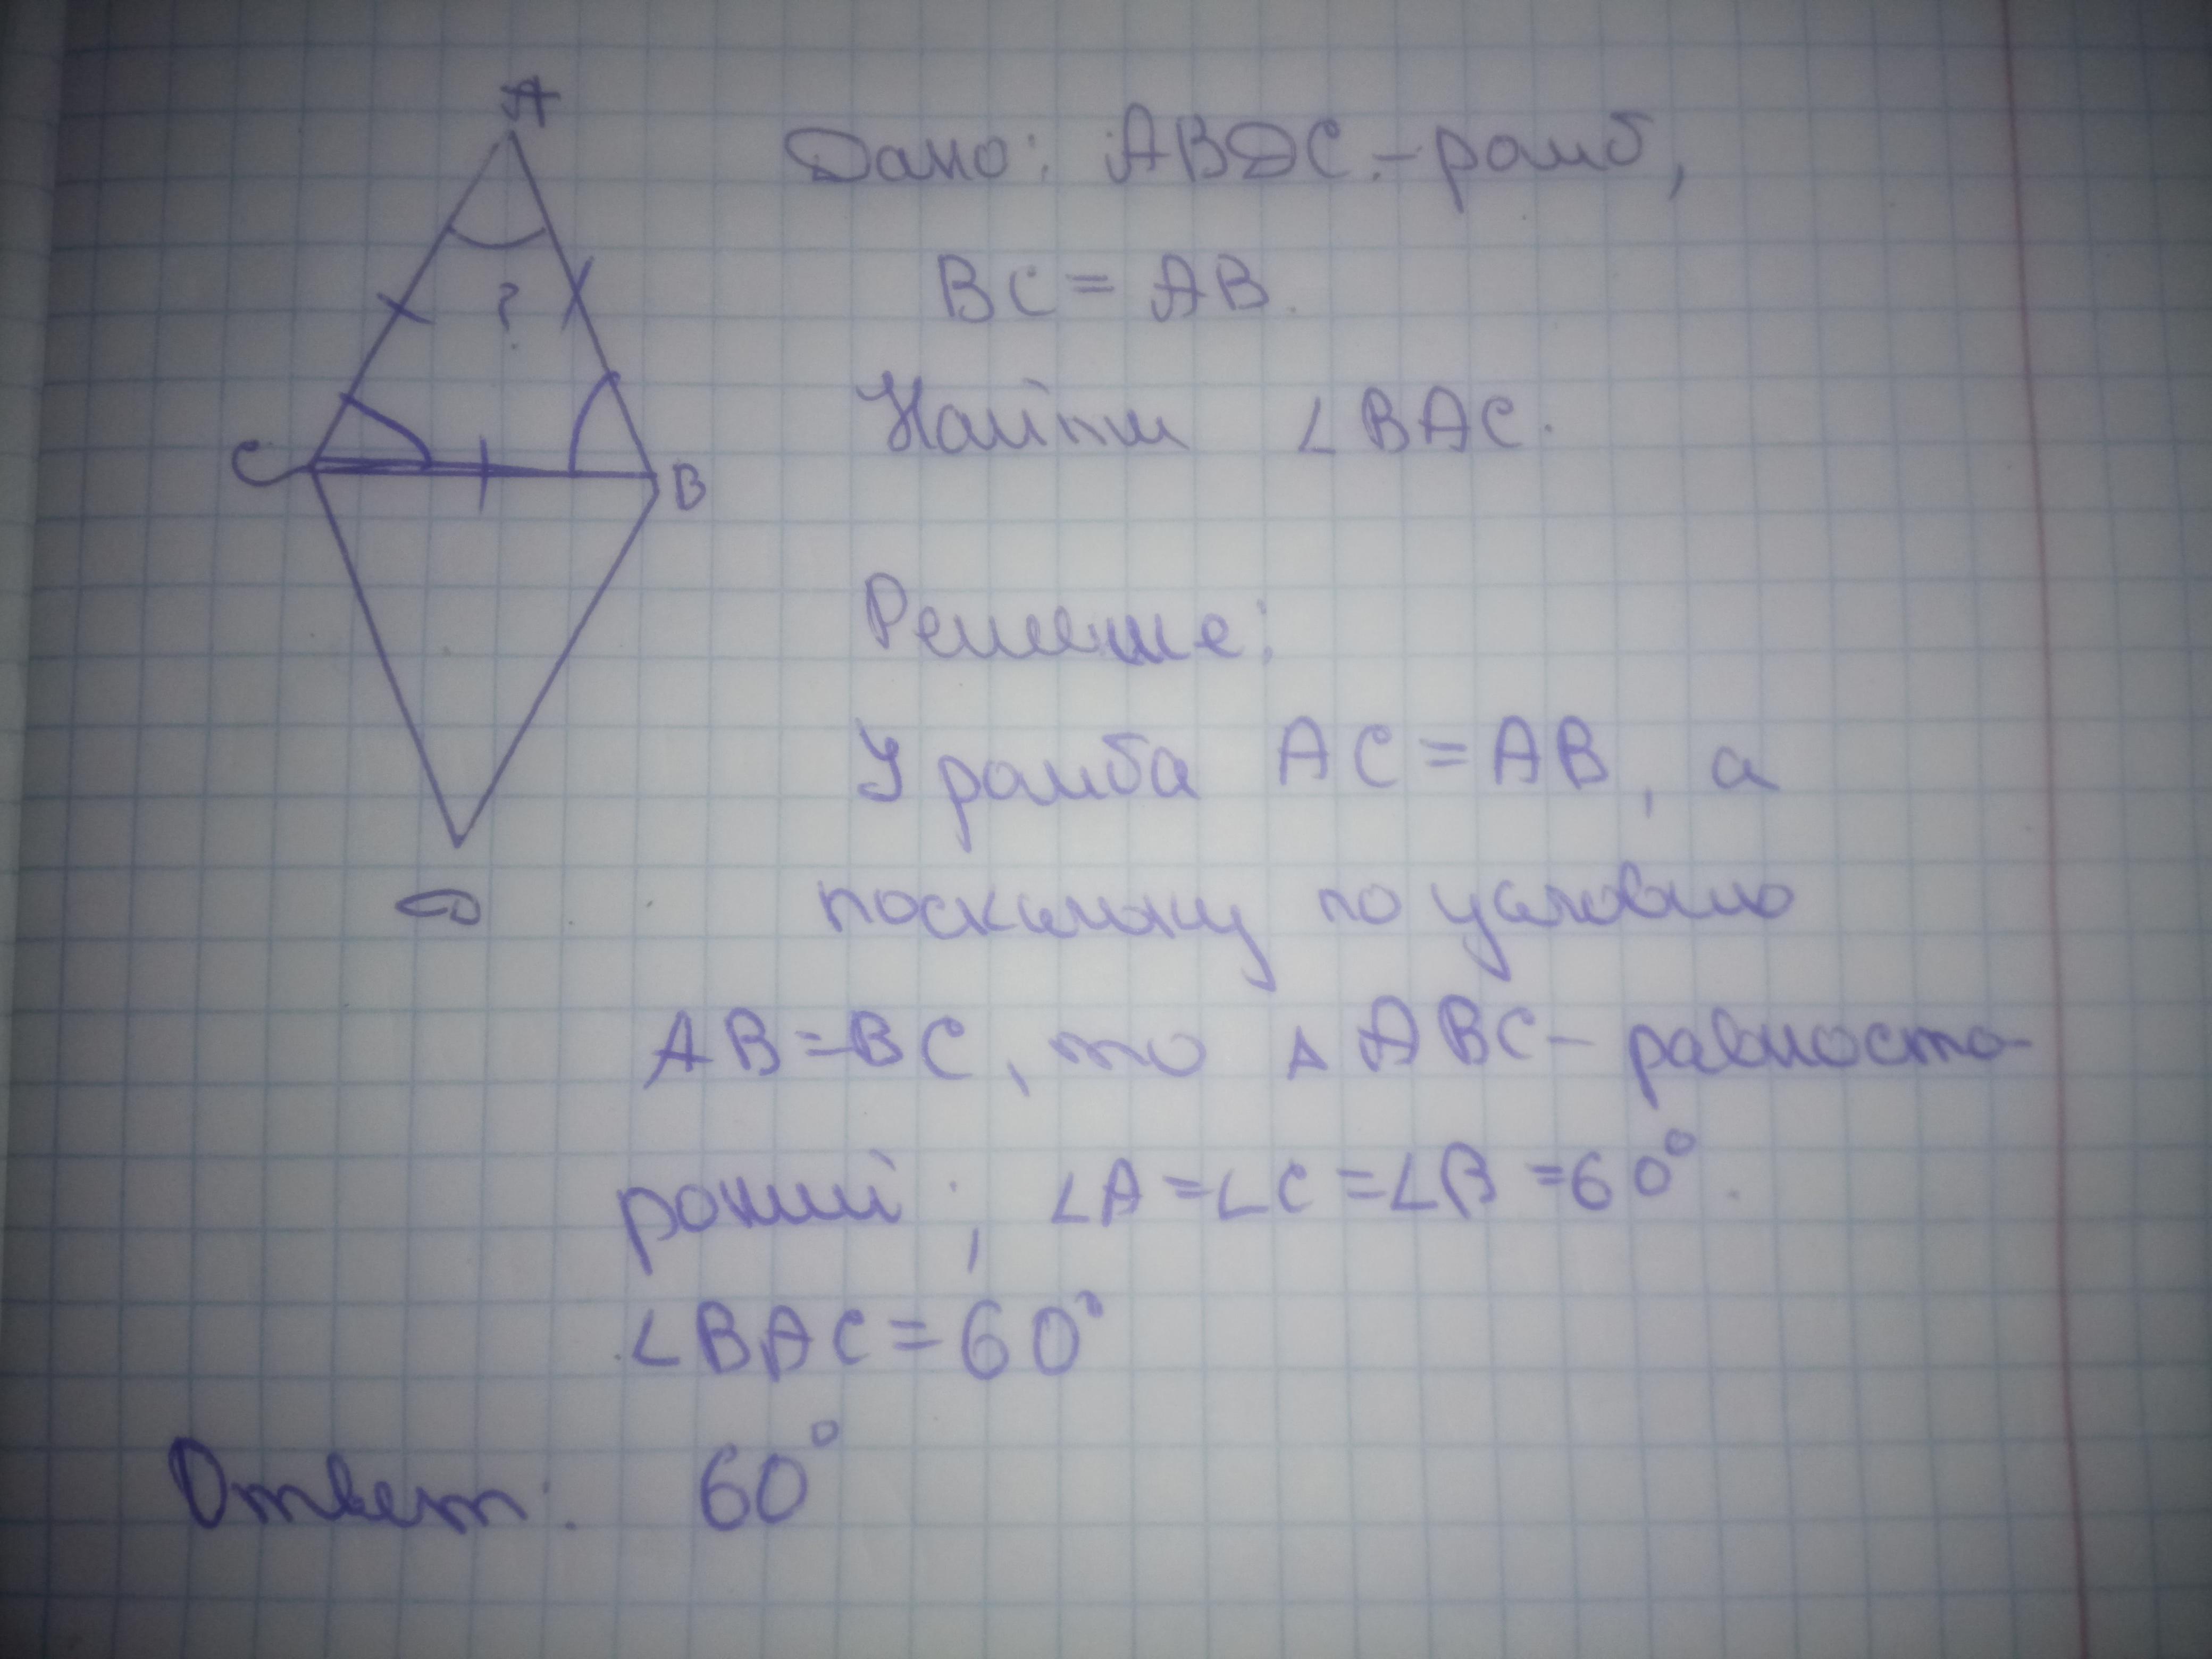 A
?
C
B
D
Дано: ABDC. - ромб,
BC = AB.
Найти ∠BAC.
Решение:
У ромба AC = AB, а
поскольку по условию
AB = BC, то △ ABC - равносто-
ронний; ∠A = ∠C = ∠B = 60°.
∠BAC = 60°
Ответ: 60°